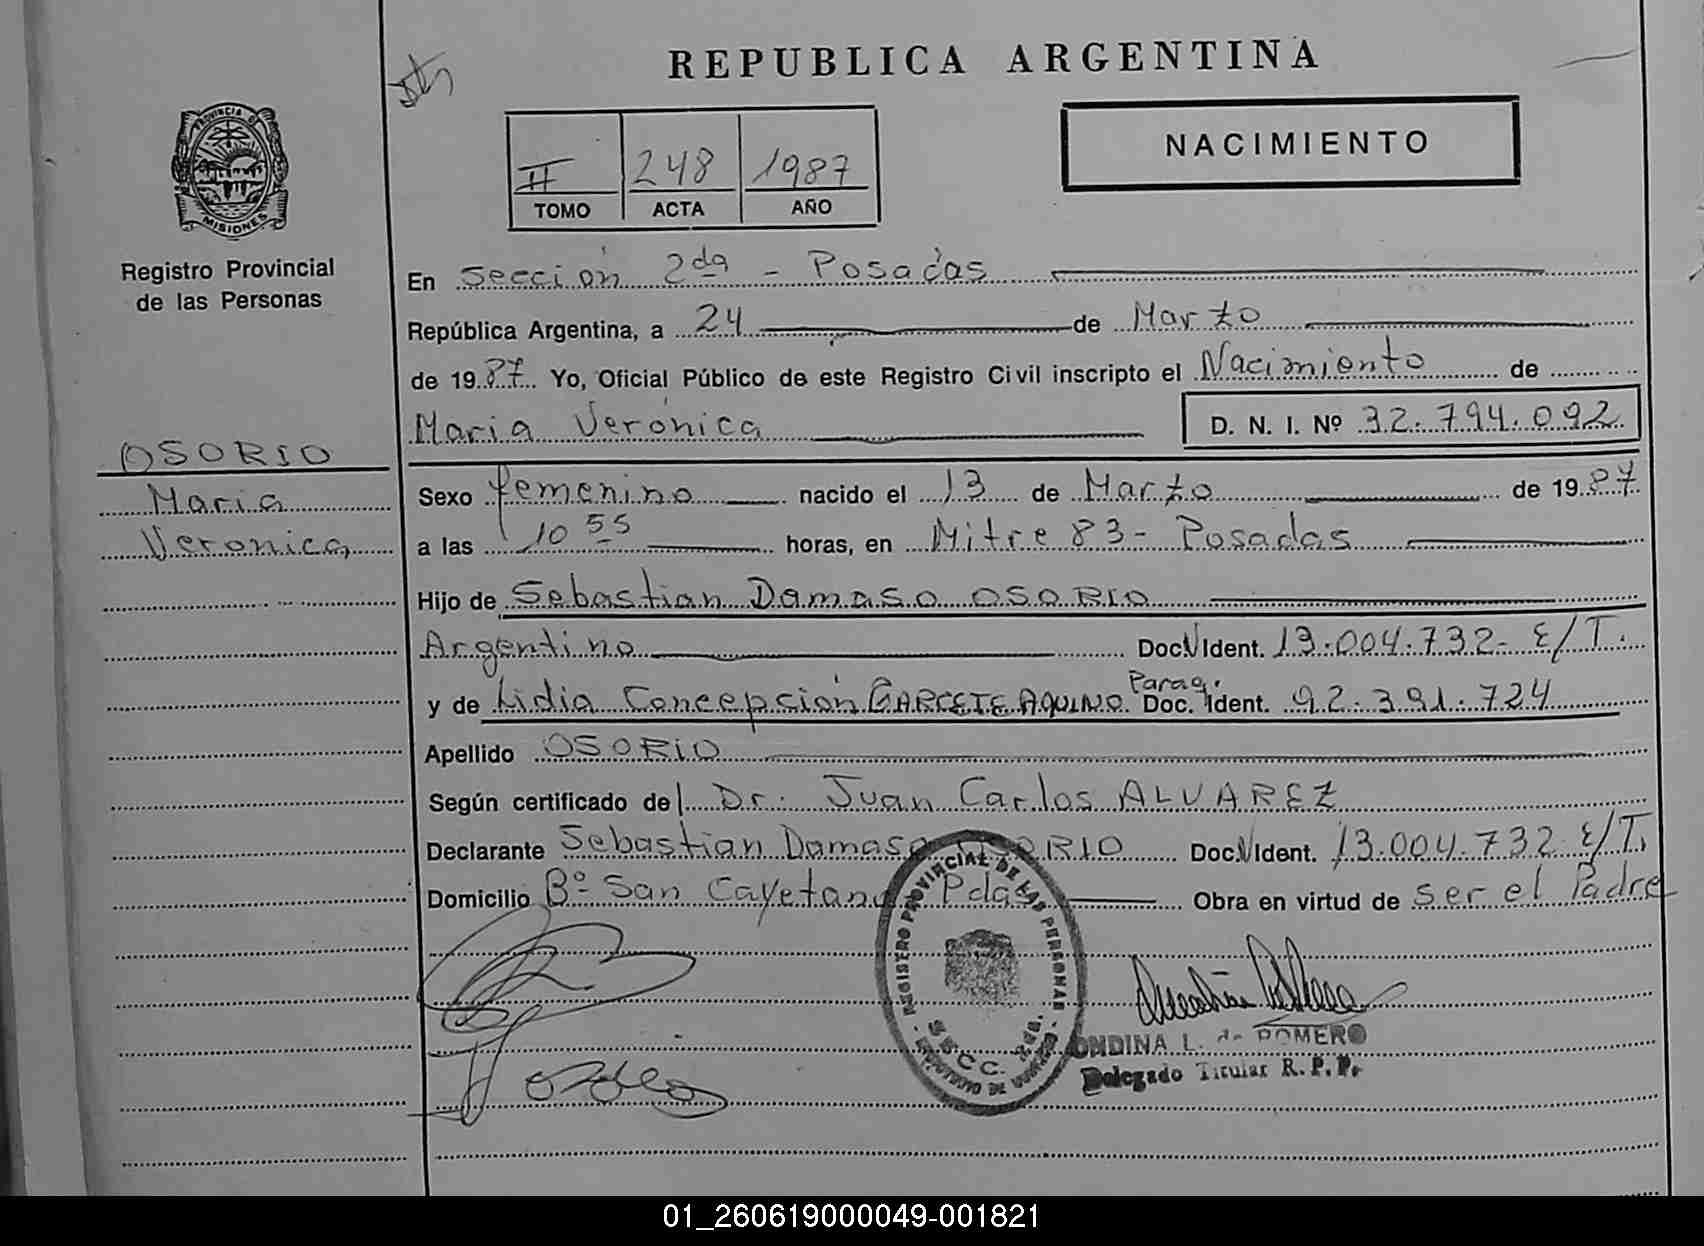 REPUBLICA ARGENTINA
PROVINCIA DE
MISIONES
Registro Provincial
de las Personas
NACIMIENTO
II 248 1987
TOMO ACTA AÑO
En Sección 2da - Posadas
República Argentina, a 24 de Marzo
de 1987 Yo, Oficial Público de este Registro Civil inscripto el Nacimiento de
Maria Verónica D. N. I. Nº 32.794.092
OSORIO
Maria
Veronica
Sexo femenino nacido el 13 de Marzo de 1987
a las 10 55 horas, en Mitre 83 - Posadas
Hijo de Sebastian Damaso OSORIO
Argentino Doc. Ident. 13.004.732- E/T.
y de Lidia Concepsión GARCETE AQUINO Parag. Doc. Ident. 92.391.724
Apellido OSORIO
Según certificado del Dr. Juan Carlos ALVAREZ
Declarante Sebastian Damaso OSORIO Doc. Ident. 13.004.732 E/T.
Domicilio Bº San Cayetano Pdas Obra en virtud de ser el Padre
REGISTRO PROVINCIAL DE LAS PERSONAS
ONDINA L. de ROMERO
Delegado Titular R. P. P.
01_260619000049-001821